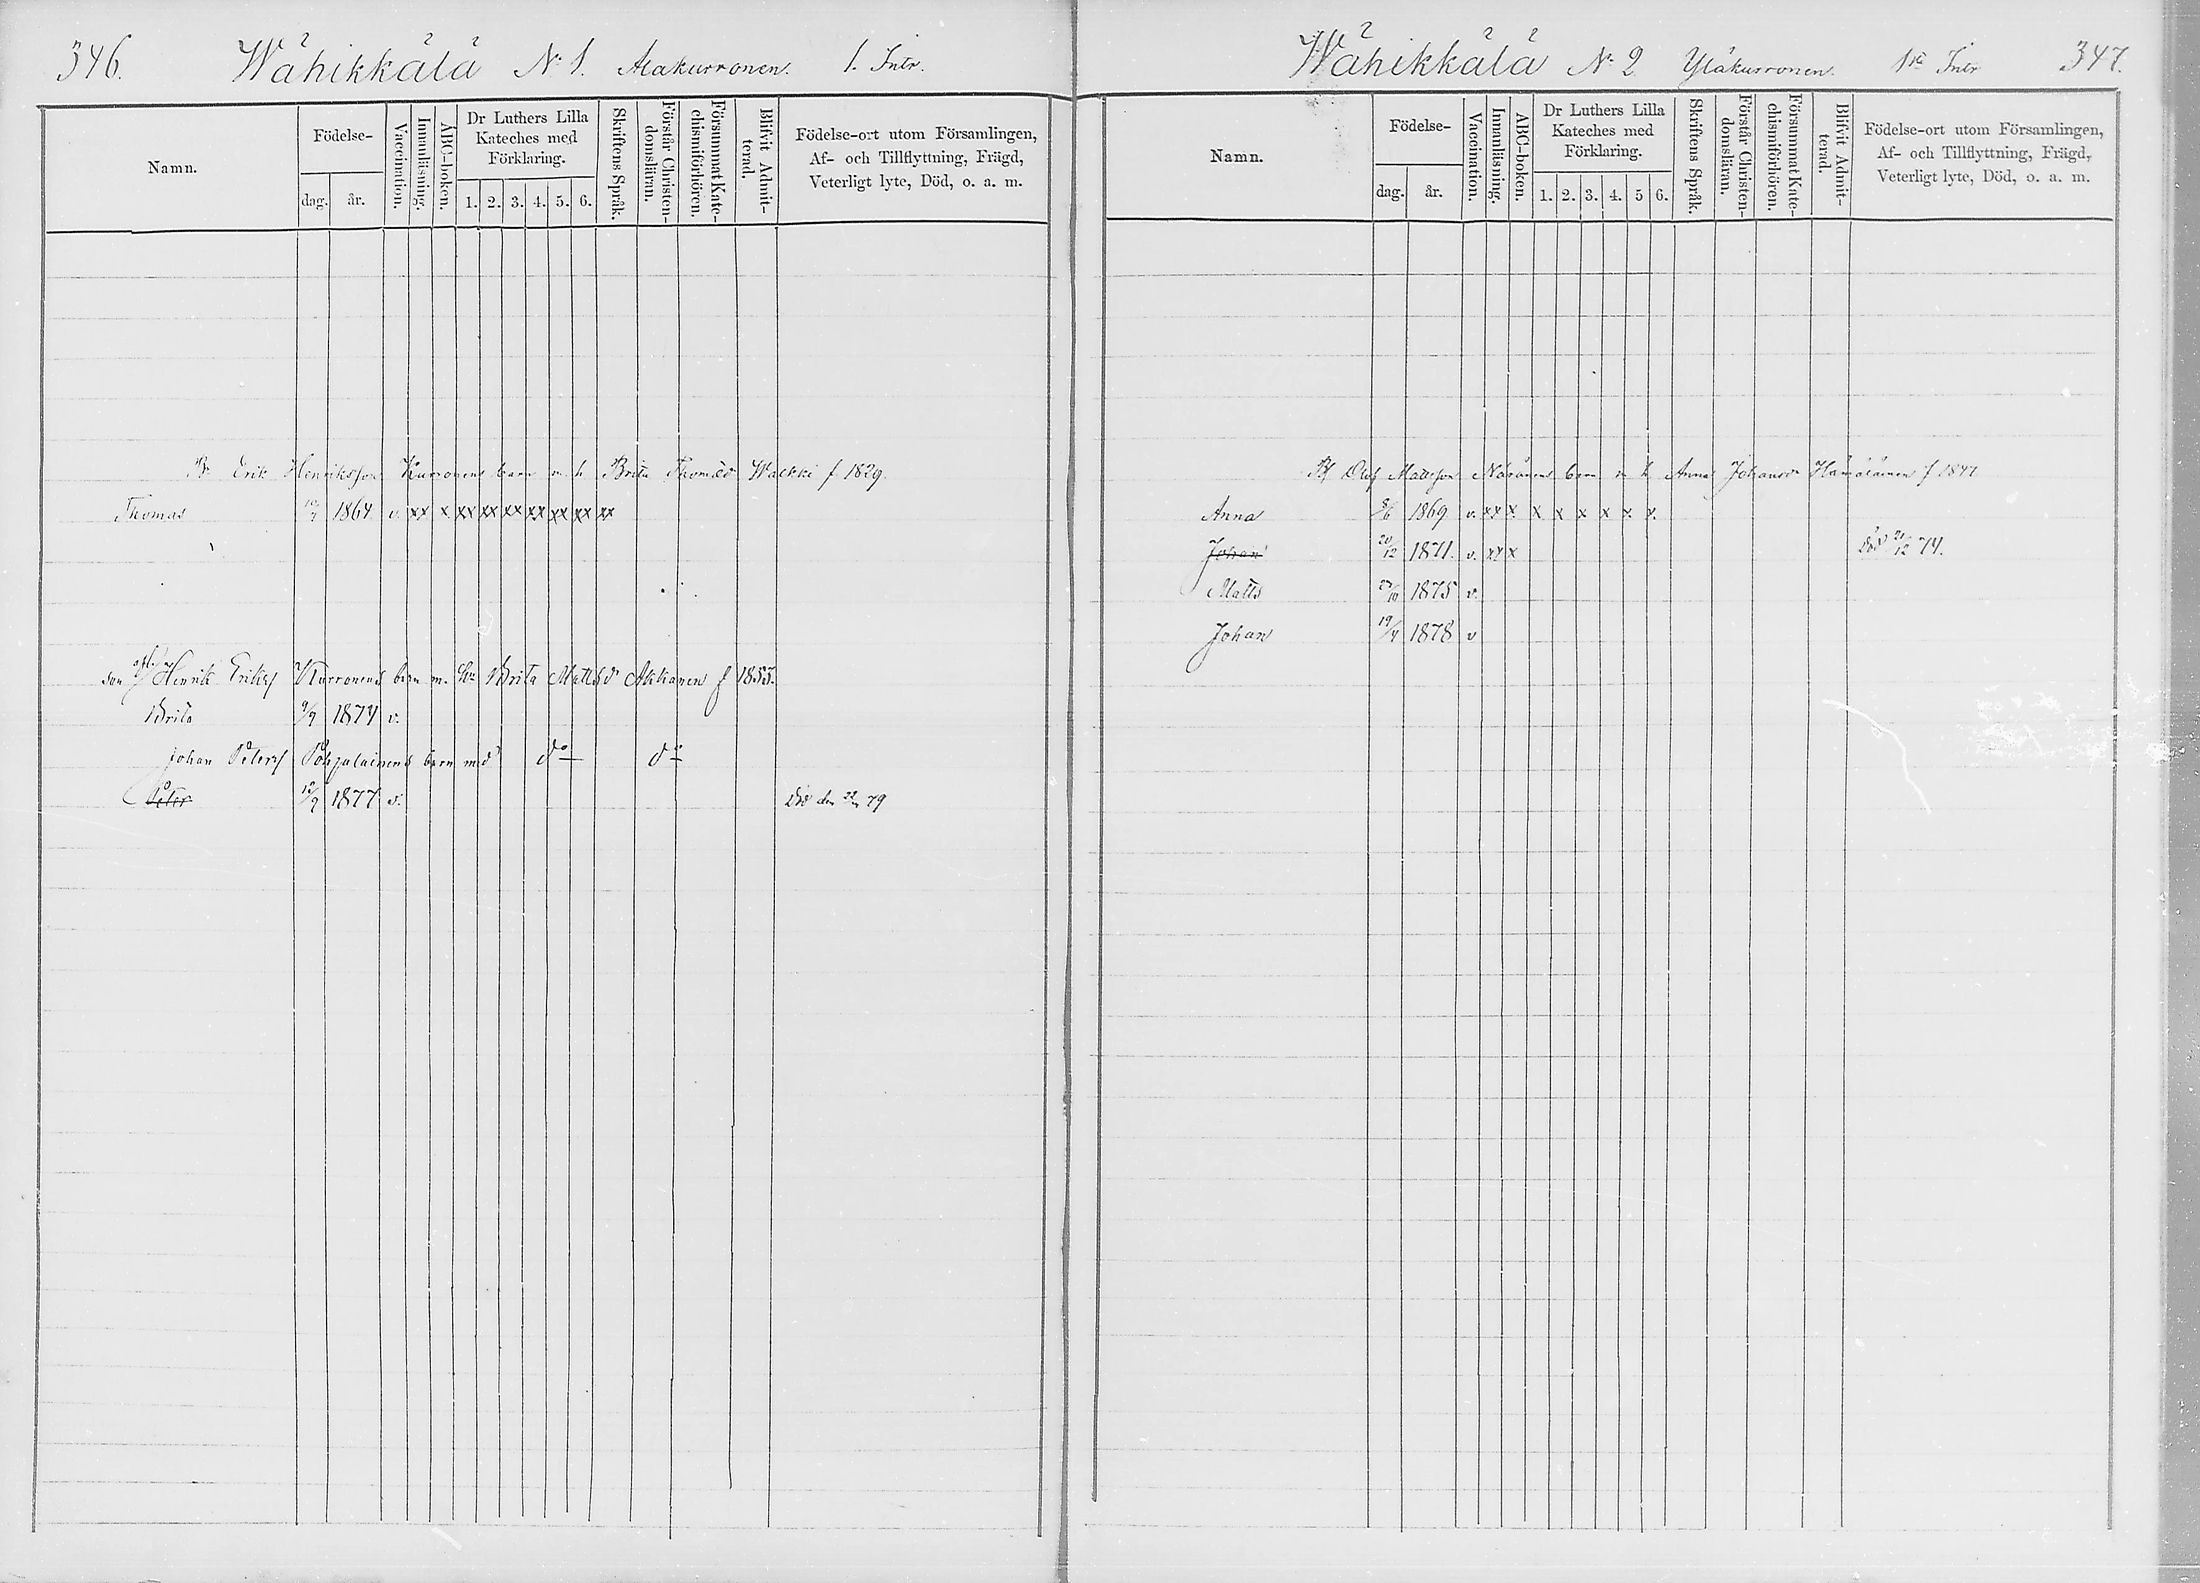 346. Wähikkälä N:1. Alakurronen. 1. Intr.
Namn.
Födelse-
dag.
år.
Vaccination.
Innanläsning.
ABC-boken.
Dr Luthers Lilla
Kateches med
Förklaring.
1. 2. 3. 4. 5. 6.
Skriftens Språk.
Förstår Christen-
domsläran.
Försummat Kate-
chismiförhören.
Blifvit Admit-
terad.
Födelse-ort utom Församlingen,
Af- och Tillflyttning, Frägd,
Veterligt lyte, Död, o. a. m.
Erik Henriksson Kurronens barn m. h. Brita Thomasd Walkki f 1829.
Thomas 1864. v. xx x xx xx xx xx xx xx xx
son Henrik Eriksf Kurronens barn m. Brita Mattsd Akkanen f 1853.
Brita 9/9 1874 v.
Johan Petersf Pohjalainens barn med do do
Peter 12/9 1877 v. Död den 79
Wähikkälä N:2 Yläkurronen. 1sta Intr 347.
Namn.
Födelse-
dag.
år.
Vaccination.
Innanläsning.
ABC-boken.
Dr Luthers Lilla
Kateches med
Förklaring.
1. 2. 3. 4. 5 6.
Skriftens Språk.
Förstår Christen-
domsläran.
Försummat Kate-
chismiförhören.
Blifvit Admit-
terad.
Födelse-ort utom Församlingen,
Af- och Tillflyttning, Frägd,
Veterligt lyte, Död, o. a. m.
Olof Matsson Näränens barn m h Anna Johansd Hämäläinen f
Anna 1869 v. xx x x x x x x x.
Johan 20/12 1871. v. xx x Död 21/12 74.
Matts 1875 v.
Johan 19/4 1878 v